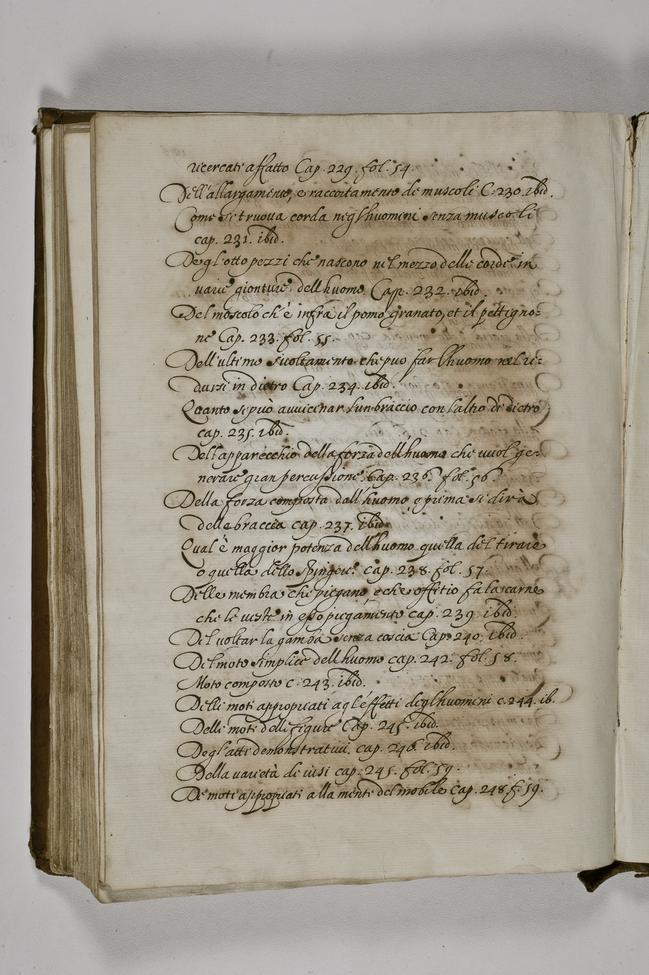 ricercati affatto Cap. 229. fol. 54.
Dell'allargamento, e raccoitamento de muscoli C. 230. ibid.
Come si truova corda negl'huomini senza muscoli
cap. 231. ibid.
Degl'otto pezzi che nascono nel mezzo delle corde in
varie gionture dell'huomo Cap. 232. ibid
Del moscolo ch'è infra il pomo granato, et il pettigno-
ne Cap. 233. fol. 55.
Dell'ultimo svoltamento che puo far l'huomo nel ve-
dersi in dietro Cap. 234. ibid.
Quanto si può avvicinar l'un braccio con l'altro di dietro
cap. 235. ibid.
Dell'apparecchio della forza dell'huomo che vuol ge-
nerare gran percussione. Cap. 236. fol. 56.
Della forza composta dall'huomo e prima si dirà
delle braccia cap. 237. ibid.
Qual'è maggior potenza dell'huomo quella del tirare
o quella dello spingere. cap. 238. fol. 57.
Delle membra che piegano, e che offitio fa la carne
che le veste in esso piegamento cap. 239. ibid.
Del voltar la gamba senza coscia Cap. 240. ibid.
Del moto simplice dell'huomo cap. 242. fol. 58.
Moto composto c. 243. ibid.
Delli moti appropriati agl'effetti degl'huomini c. 244. ib.
Delli moti delle figure Cap. 245. ibid.
Degl'atti demonstrativi, cap. 246. ibid.
Della varietà de visi cap. 245. fol. 59.
De moti appropriati alla mente del mobile Cap. 248. f. 59.